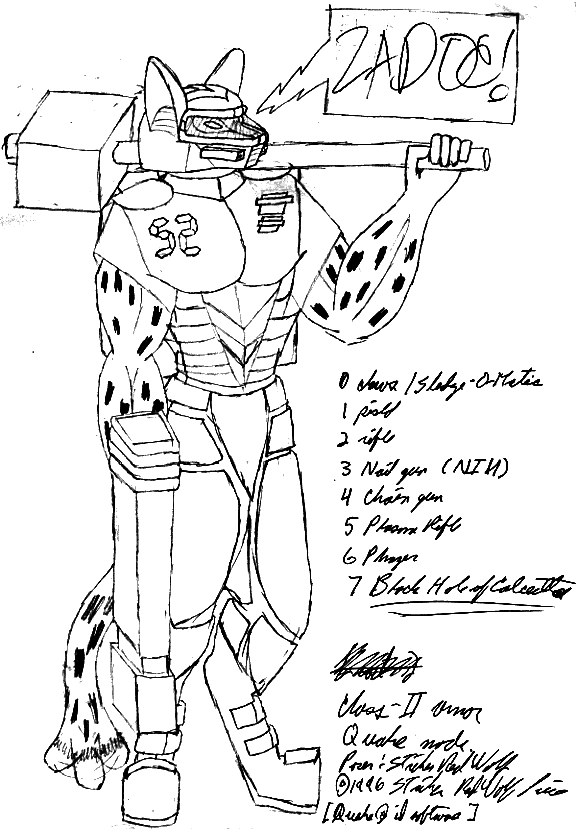 ZADOC!
52
0 claws / Sledge-O-Matic
1 pistol
2 rifle
3 Nail gun (NIN)
4 Chain gun
5 Plasma Rifle
6 Phaser
7 Black Hole of Calcutta
Class-II armor
Quake node
Pose: Striker Red Wolf
©1996 Striker Red Wolf
[Quake® id software]